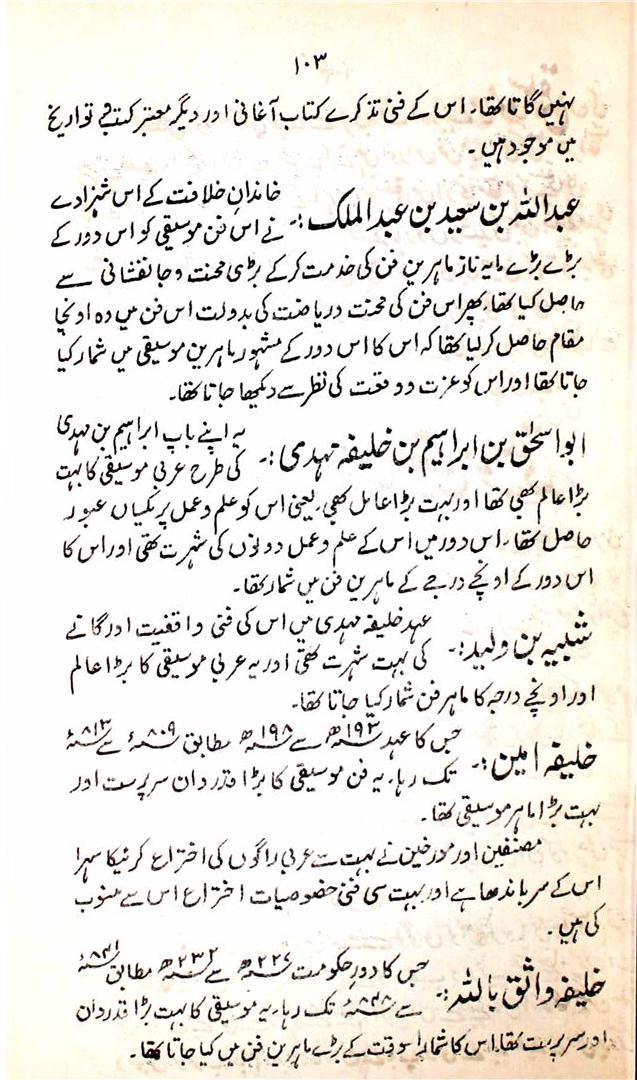 ۱۰۳
نہیں گاتا تھا۔ اس کے فنی تذکرے کتاب آغانی اور دیگر معتبر کتب تواریخ
میں موجود ہیں۔
خاندانِ خلافت کے اس شہزادے
عبداللہ بن سعید بن عبدالملک:۔ نے اس فن موسیقی کو اس دور کے
بڑے بڑے مایہ ناز ماہرینِ فن کی خدمت کرکے بڑی محنت و جانفشانی سے
حاصل کیا تھا۔ پھر اس فن کی محنت و ریاضت کی بدولت اس فن میں وہ اونچا
مقام حاصل کرلیا تھا کہ اس کا اس دور کے مشہور ماہرین موسیقی میں شمار کیا
جاتا تھا اور اس کو عزت و وقعت کی نظر سے دیکھا جاتا تھا۔
یہ اپنے باپ ابراہیم بن مہدی
ابواسحٰق بن ابراہیم بن خلیفہ مہدی:۔ کی طرح عربی موسیقی کا بہت
بڑا عالم بھی تھا اور بہت بڑا عامل بھی۔ یعنی اس کو علم و عمل پر یکساں عبور
حاصل تھا۔ اس دور میں اس کے علم و عمل دونوں کی شہرت تھی اور اس کا
اس دور کے اونچے درجے کے ماہرین فن میں شمار تھا۔
عہد خلیفہ مہدی میں اس کی فنی واقفیت اور گانے
شلبیہ بن ولید:۔ کی بہت شہرت تھی اور یہ عربی موسیقی کا بڑا عالم
اور اونچے درجہ کا ماہر فن شمار کیا جاتا تھا۔
جس کا عہد ۱۹۳ھ سے ۱۹۸ھ مطابق ۸۰۹ء سے ۸۱۳ء
خلیفہ امین:۔ تک رہا۔ یہ فن موسیقی کا بڑا قدردان سرپرست اور
بہت بڑا ماہر موسیقی تھا۔
مصنفین اور مورخین نے بہت سے عربی راگوں کی اختراع کرنیکا سہرا
اس کے سر باندھا ہے اور بہت سی فنی خصوصیات اختراع اس سے منسوب
کی ہیں۔
جس کا دورِ حکومت ۲۲۷ھ سے ۲۳۲ھ مطابق ۸۴۱ء
خلیفہ واثق باللہ:۔ سے ۸۴۷ء تک رہا۔ یہ موسیقی کا بہت بڑا قدردان
اور سرپرست تھا۔ اس کا شمار اسوقت کے بڑے ماہرین فن میں کیا جاتا تھا۔